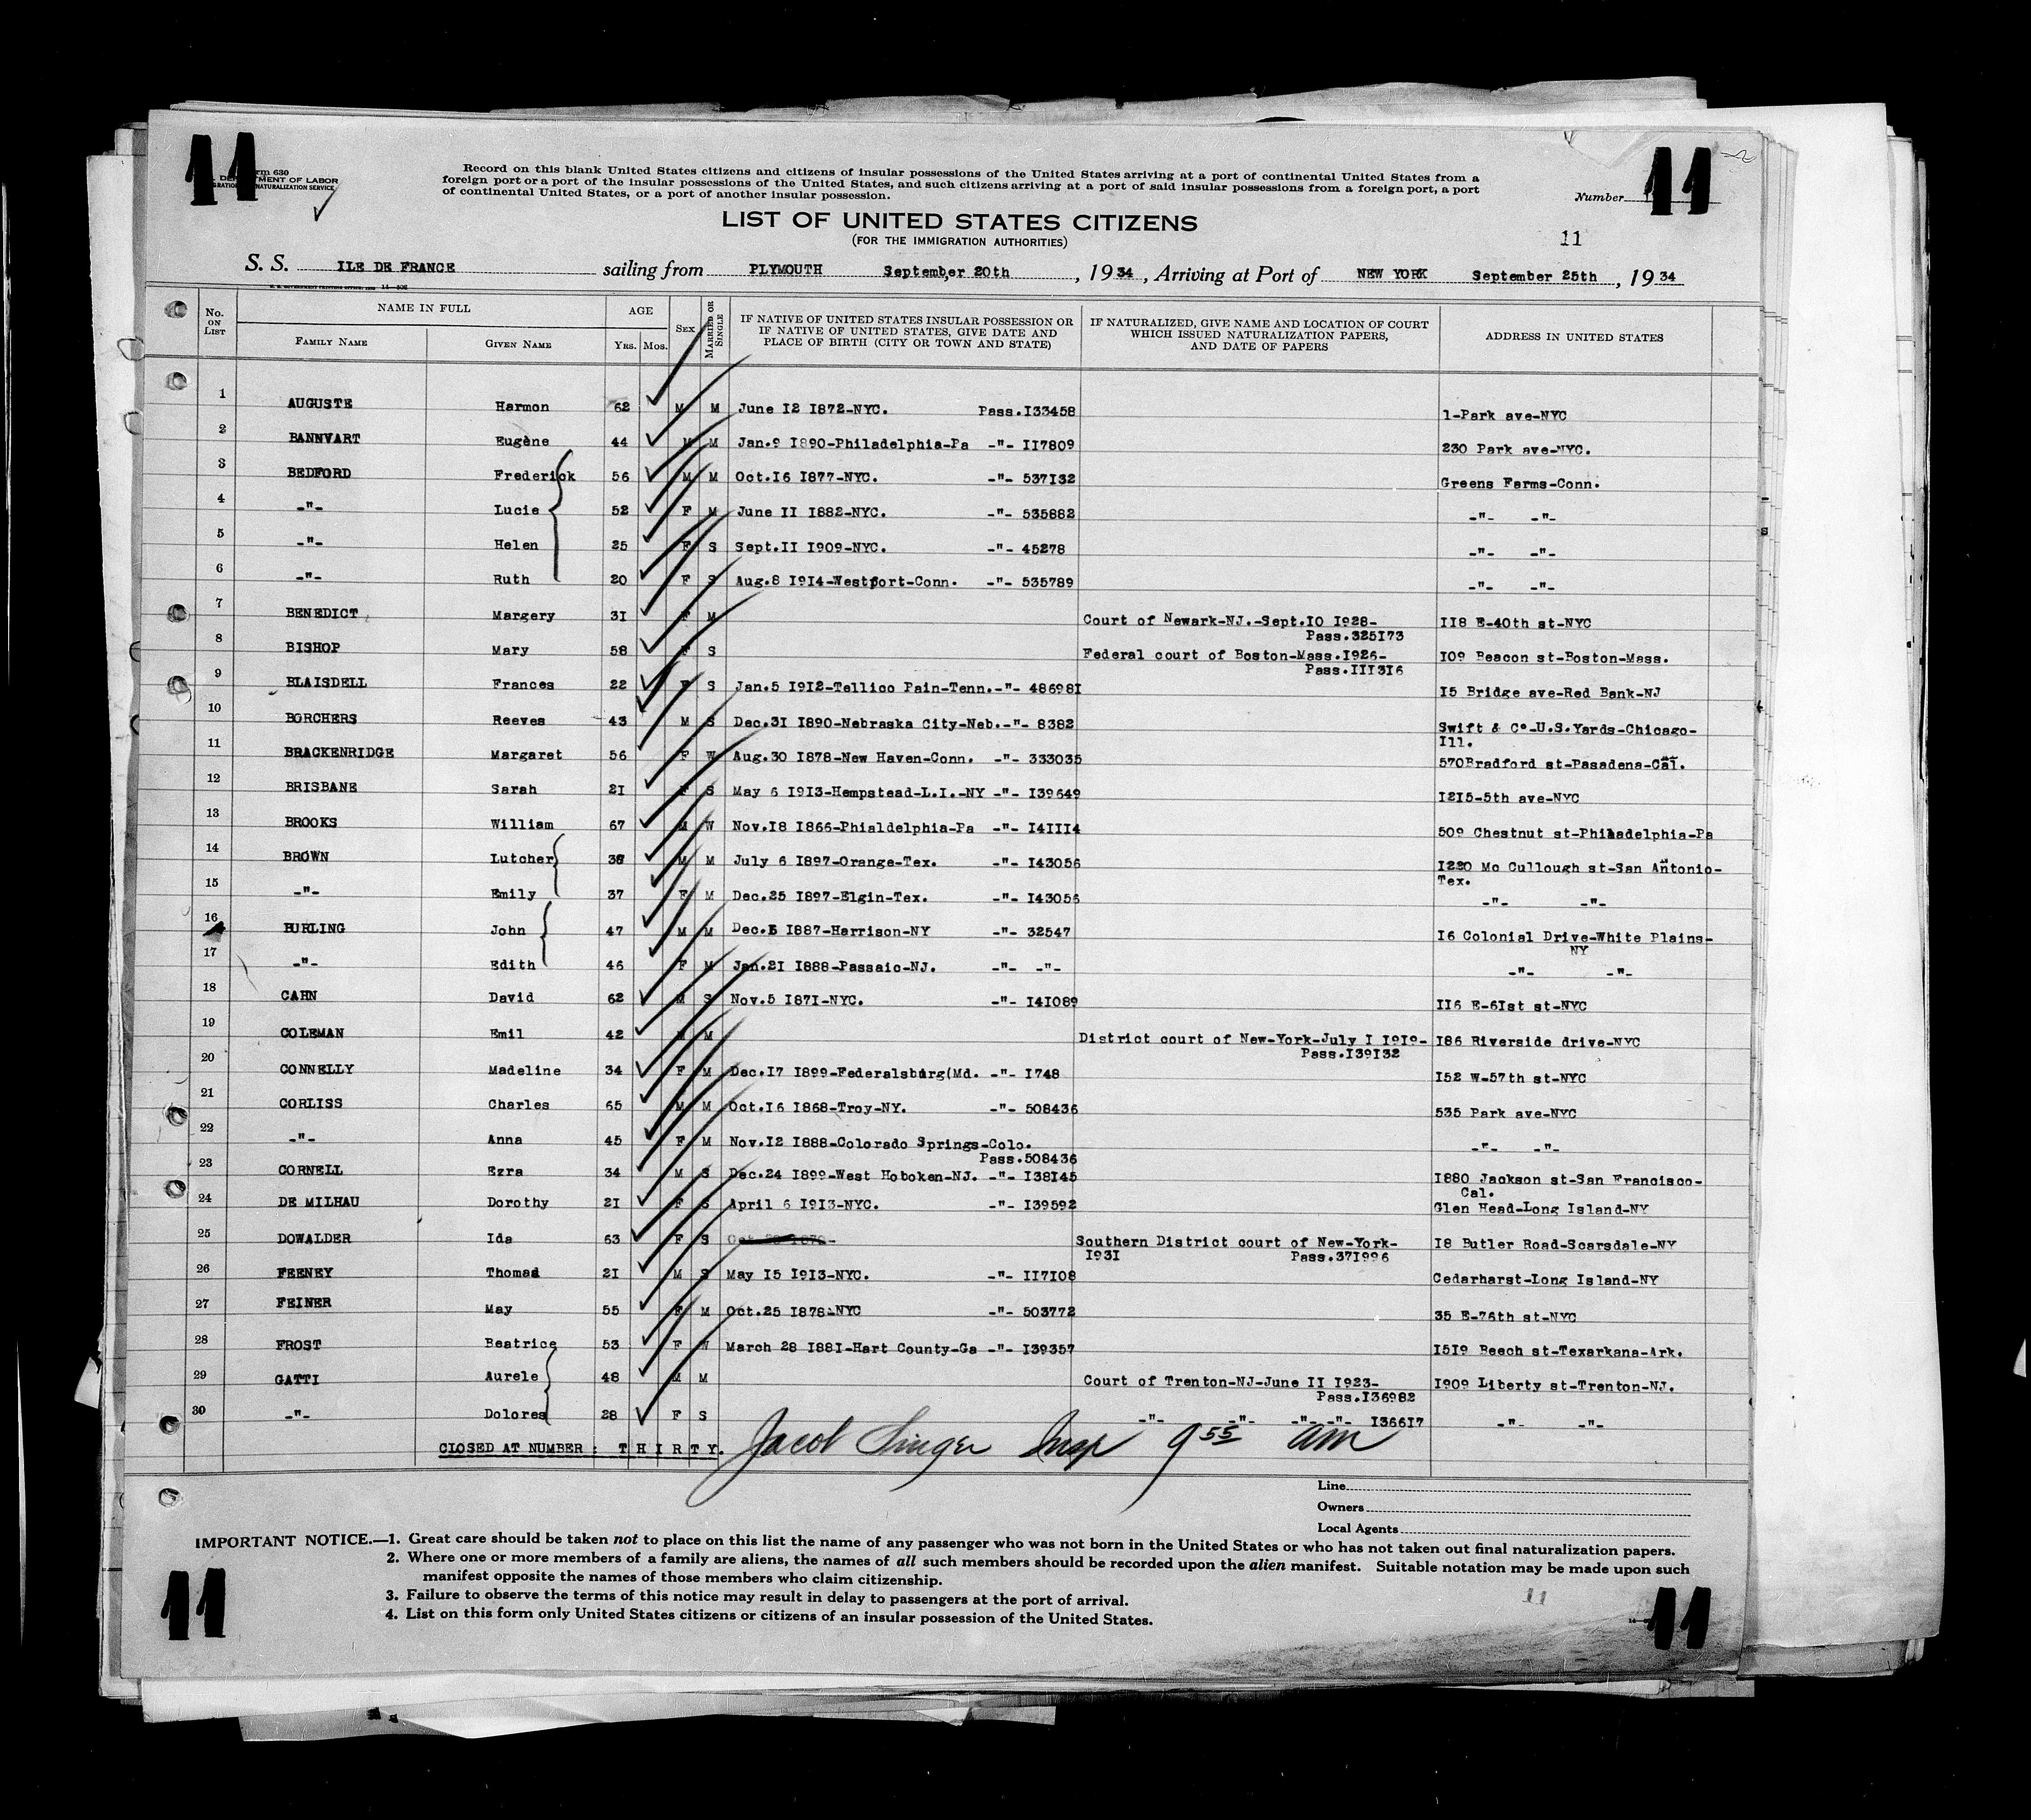 11 11
Form 630
U. S. DEPARTMENT OF LABOR
IMMIGRATION AND NATURALIZATION SERVICE
Record on this blank United States citizens and citizens of insular possessions of the United States arriving at a port of continental United States from a
foreign port or a port of the insular possessions of the United States, and such citizens arriving at a port of said insular possessions from a foreign port, a port
of continental United States, or a port of another insular possession.
Number
LIST OF UNITED STATES CITIZENS
(FOR THE IMMIGRATION AUTHORITIES)
11
S. S. ILE DE FRANCE sailing from PLYMOUTH September 20th , 1934 , Arriving at Port of NEW YORK September 25th , 1934
No. ON LIST NAME IN FULL FAMILY NAME GIVEN NAME AGE YRS. MOS. SEX MARRIED OR SINGLE IF NATIVE OF UNITED STATES INSULAR POSSESSION OR IF NATIVE OF UNITED STATES, GIVE DATE AND PLACE OF BIRTH (CITY OR TOWN AND STATE) IF NATURALIZED, GIVE NAME AND LOCATION OF COURT WHICH ISSUED NATURALIZATION PAPERS, AND DATE OF PAPERS ADDRESS IN UNITED STATES
1 AUGUSTE Harmon 62 M M June I2 I872-NYC. Pass.I33458 1-Park ave-NYC
2 BANNVART Eugène 44 M M Jan.9 I890-Philadelphia-Pa -"- II7809 230 Park ave-NYC.
3 BEDFORD Frederick 56 M M Oct.I6 I877-NYC. -"- 537I32 Greens Farms-Conn.
4 -"- Lucie 52 F M June II I882-NYC. -"- 535882 -"- -"-
5 -"- Helen 25 F S Sept.II I909-NYC. -"- 45278 -"- -"-
6 -"- Ruth 20 F S Aug.8 I9I4-Westport-Conn. -"- 535789 -"- -"-
7 BENEDICT Margery 3I F M Court of Newark-NJ.-Sept.IO I928- II8 E-40th st-NYC
Pass.325I73
8 BISHOP Mary 58 F S Federal court of Boston-Mass.I926- I09 Beacon st-Boston-Mass.
Pass.III3I6
9 BLAISDELL Frances 22 F S Jan.5 I9I2-Tellico Pain-Tenn.-"- 48698I I5 Bridge ave-Red Bank-NJ
10 BORCHERS Reeves 43 M S Dec.3I I890-Nebraska City-Neb.-"- 8382 Swift & Co-U.S.Yards-Chicago-
Ill.
11 BRACKENRIDGE Margaret 56 F W Aug.30 I878-New Haven-Conn. -"- 333035 570Bradford st-Pasadena-Cal.
12 BRISBANE Sarah 2I F S May 6 I9I3-Hempstead-L.I.-NY -"- I39649 I2I5-5th ave-NYC
13 BROOKS William 67 M W Nov.I8 I866-Phialdelphia-Pa -"- I4III4 509 Chestnut st-Philadelphia-Pa
14 BROWN Lutcher M M July 6 I897-Orange-Tex. -"- I43056 I220 Mc Cullough st-San Antonio-
Tex.
15 -"- Emily 37 F M Dec.25 I897-Elgin-Tex. -"- I43056 -"- -"-
16 BURLING John 47 M M Dec. I887-Harrison-NY -"- 32547 I6 Colonial Drive-White Plains-
NY
17 -"- Edith 46 F M Jan.2I I888-Passaic-NJ. -"- -"- -"- -"-
18 CAHN David 62 M S Nov.5 I87I-NYC. -"- I4I089 II6 E-6Ist st-NYC
19 COLEMAN Emil 42 M M District court of New-York-July I I9I9- I86 Riverside drive-NYC
Pass.I39I32
20 CONNELLY Madeline 34 F M Dec.I7 I899-Federalsburg(Md. -"- I748 I52 W-57th st-NYC
21 CORLISS Charles 65 M M Oct.I6 I868-Troy-NY. -"- 508436 535 Park ave-NYC
22 -"- Anna 45 F M Nov.I2 I888-Colorado Springs-Colo. -"- -"-
Pass.508436
23 CORNELL Ezra 34 M S Dec.24 I899-West Hoboken-NJ. -"- I38I45 I880 Jackson st-San Francisco-
Cal.
24 DE MILHAU Dorothy 2I F S April 6 I9I3-NYC. -"- I39592 Glen Head-Long Island-NY
25 DOWALDER Ida 63 F S Southern District court of New-York- I8 Butler Road-Scarsdale-NY
I93I Pass.37I996
26 FEENEY Thomas 2I M S May I5 I9I3-NYC. -"- II7I08 Cedarharst-Long Island-NY
27 FEINER May 55 F M Oct.25 I878-NYC -"- 503772 35 E-76th st-NYC
28 FROST Beatrice 53 F W March 28 I88I-Hart County-Ga -"- I39357 I5I9 Beech st-Texarkana-Ark.
29 GATTI Aurele 48 M M Court of Trenton-NJ-June II I923- I909 Liberty st-Trenton-NJ.
Pass.I36982
30 -"- Dolores 28 F S -"- -"- -"- -"- I366I7 -"- -"-
CLOSED AT NUMBER : T H I R T Y. Jacob Singer Insp 9 55 am
Line
Owners
Local Agents
IMPORTANT NOTICE.—1. Great care should be taken not to place on this list the name of any passenger who was not born in the United States or who has not taken out final naturalization papers.
2. Where one or more members of a family are aliens, the names of all such members should be recorded upon the alien manifest. Suitable notation may be made upon such
manifest opposite the names of those members who claim citizenship.
3. Failure to observe the terms of this notice may result in delay to passengers at the port of arrival.
4. List on this form only United States citizens or citizens of an insular possession of the United States.
11
11 11